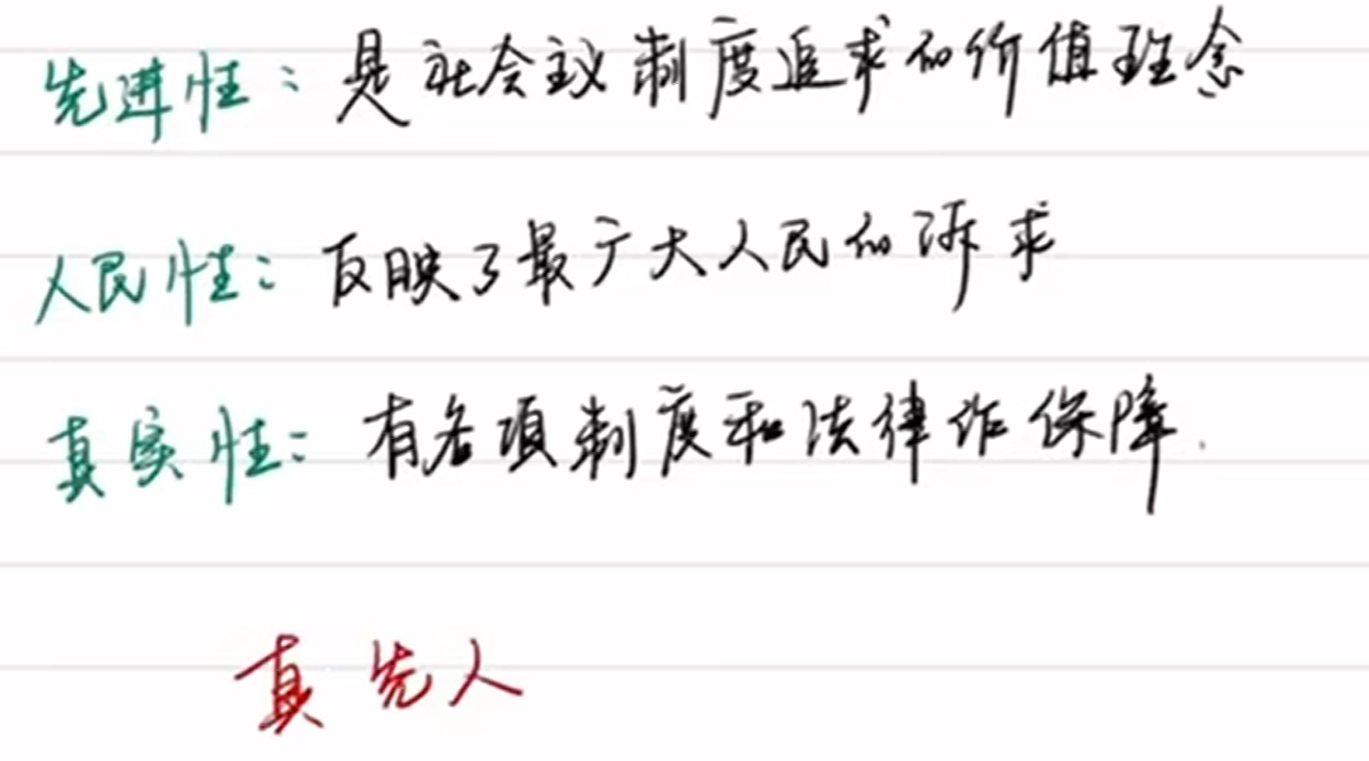 先进性：是社会议制度追求的价值理念
人民性：反映了最广大人民的诉求
真实性：有各项制度和法律作保障.
真先人